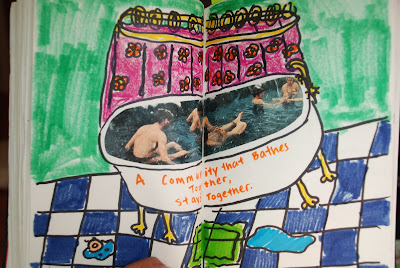 A Community that Bathes
Together,
Stays Together.